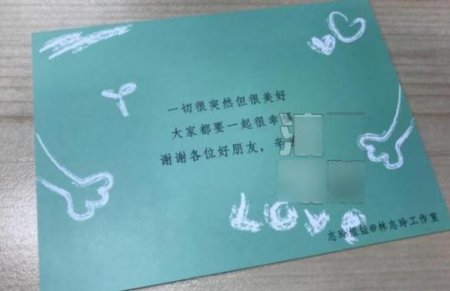 一切很突然但很美好
大家都要一起很幸
谢谢各位好朋友，辛
Love
志玲姐姐@林志玲工作室